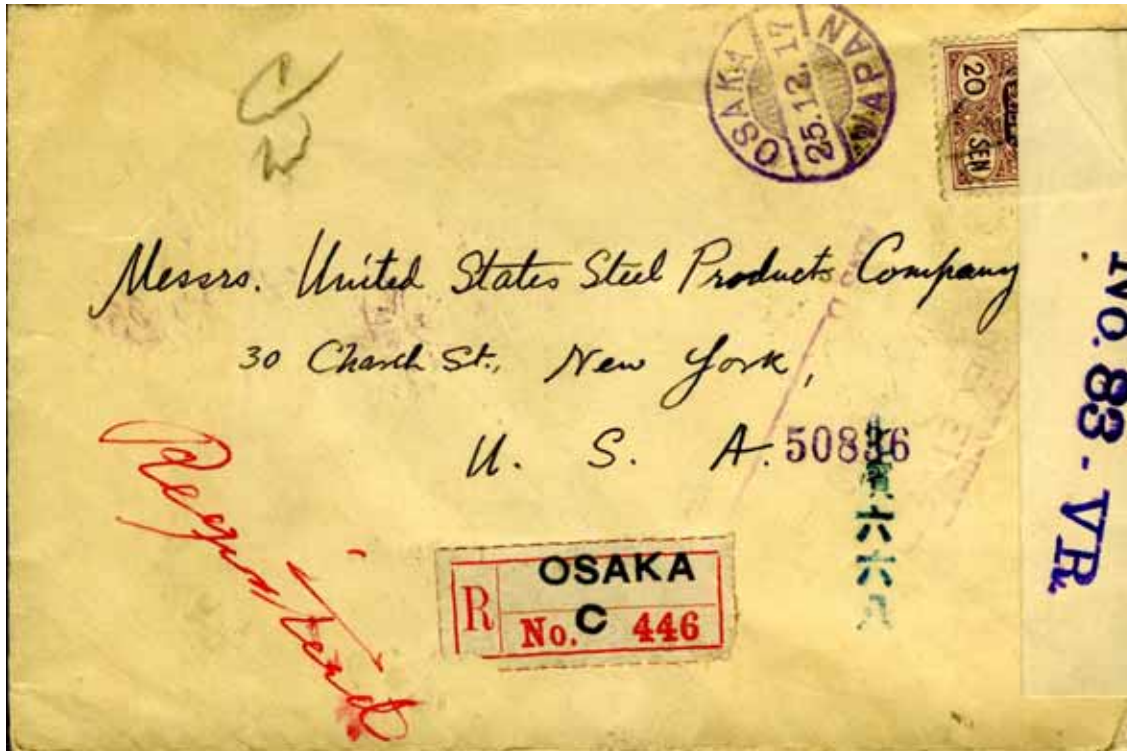 C
OSAKA
25.12.17
JAPAN
20 SEN
Messrs. United States Steel Products Company
30 Church St., New York,
U. S. A.
50836
Registered
六六八
OSAKA
R No. C 446
No. 83 - VR.